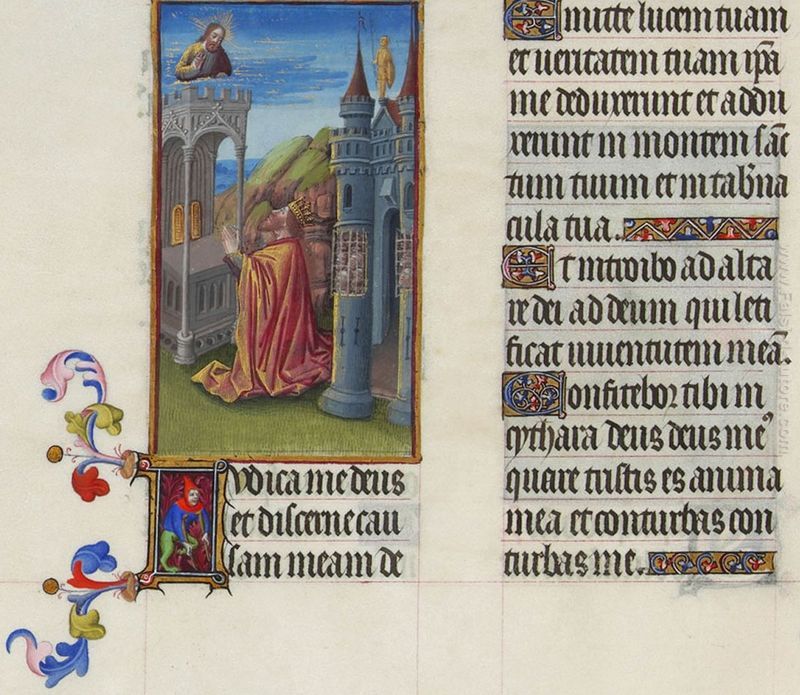 Iudica me deus
et discerne cau
sam meam de
Emitte lucem tuam
et ueritatem tuam ipa
me deduxerunt et addu
xerunt in montem sāc
tum tuum et in tab̄na
cula tua.
Et introibo ad alta
re dei ad deum qui leti
ficat iuuentutem meā.
Confitebor tibi in
cythara deus deus me᾿
quare tristis es anima
mea et conturbas con
turbas me.